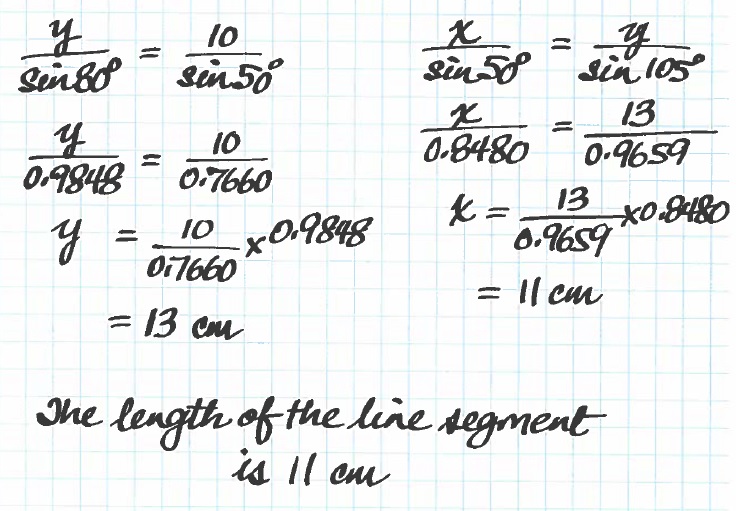 y/sin80° = 10/sin50°
y/0.9848 = 10/0.7660
y = 10/0.7660 x 0.9848
= 13 cm
x/sin50° = y/sin105°
x/0.8480 = 13/0.9659
x = 13/0.9659 x 0.8480
= 11 cm
The length of the line segment
is 11 cm